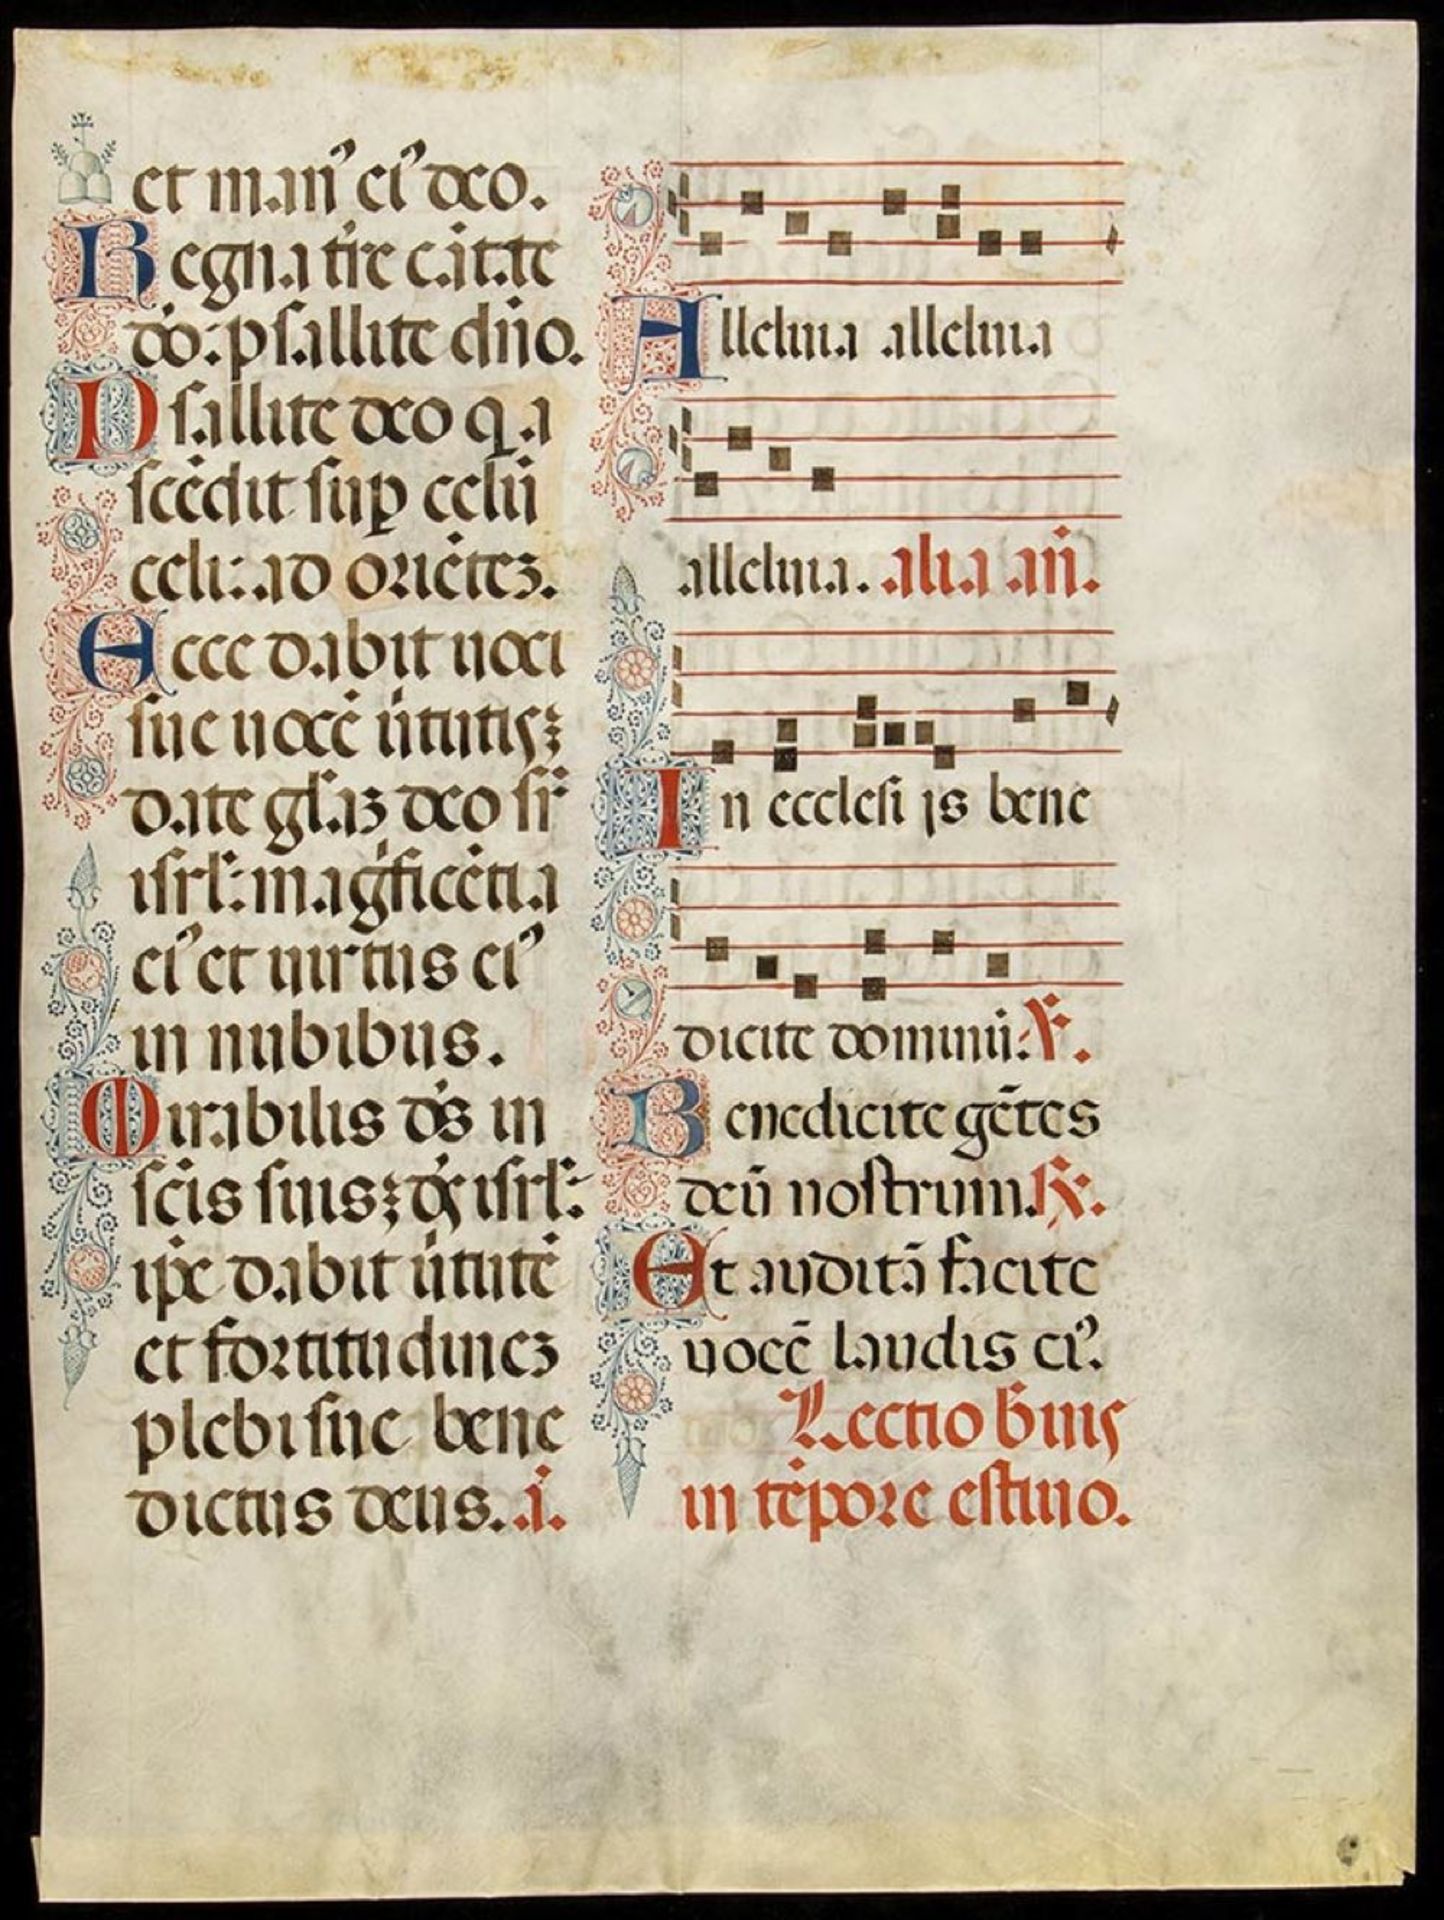 et man⁹ ei⁹ deo.
Regna tr̄e cātate
deo: psallite dn̄o.
Psallite deo q a
scēdit sup̱ celū
celi: ad oriētez.
Ecce dabit uoci
sue uocē ūtutis:
date gl̄az deo sr̄
isrl̄: magficētia
ei⁹ et uirtus ei⁹
in nubibus.
Mirabilis ds̄ in
scīs suis: ds̄ isrl̄:
ip̄e dabit ūtutē
et fortitudinez
plebi sue bene
dictus deus. i.
Alleluia alleluia
alleluia. alia añ.
In ecclesi is bene
dicite dominū: ℣.
Benedicite gētes
deū nostrum. ℟.
Et auditā facite
uocē laudis ei⁹.
Lectio b̄uis
in tēpore estiuo.